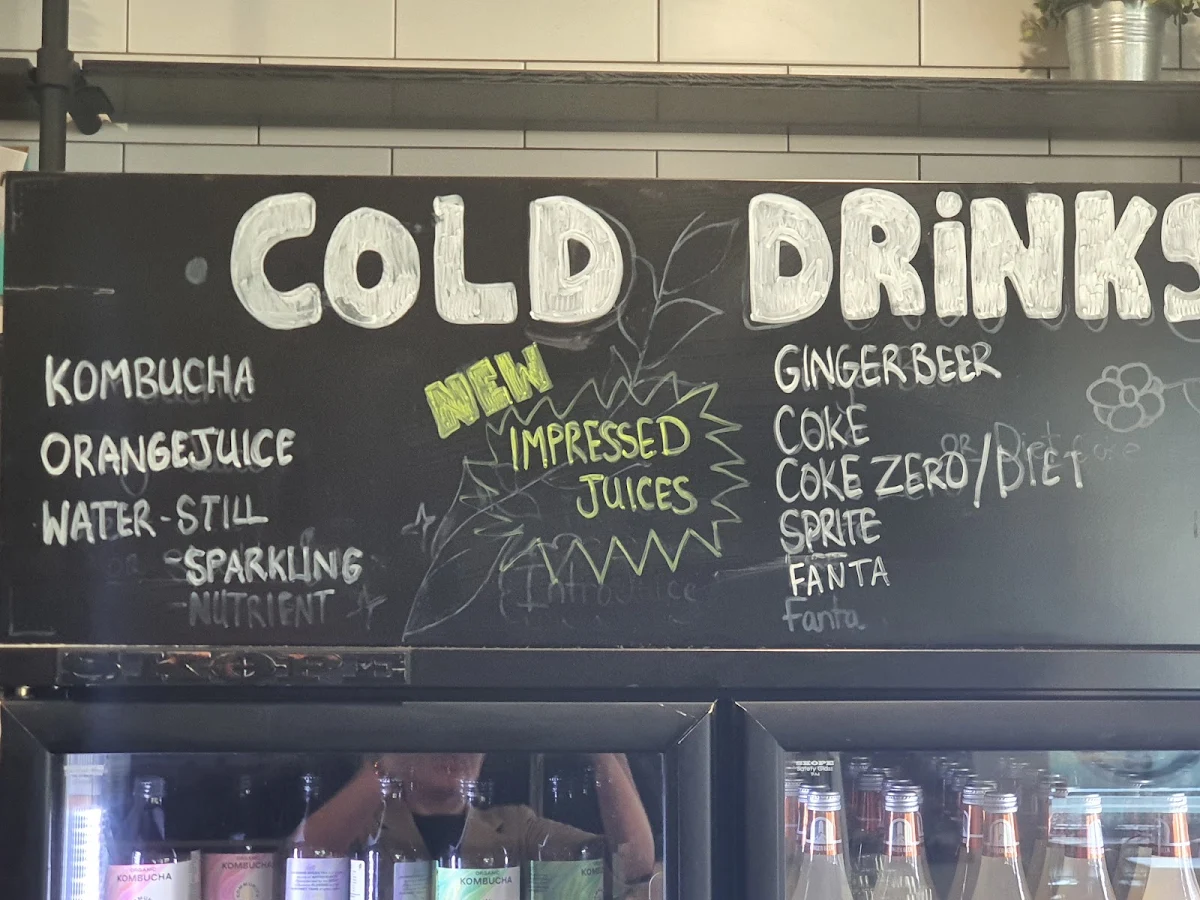 COLD DRiNKS
KOMBUCHA
ORANGEJUICE
WATER-STILL
-SPARKLING
-NUTRIENT
NEW
IMPRESSED
JUICES
GINGERBEER
COKE
COKE ZERO/DIET
SPRITE
FANTA
Fanta
SKOPE
Safety Glass
ORGANIC
KOMBUCHA
KOMBUCHA
ORGANIC
KOMBUCHA